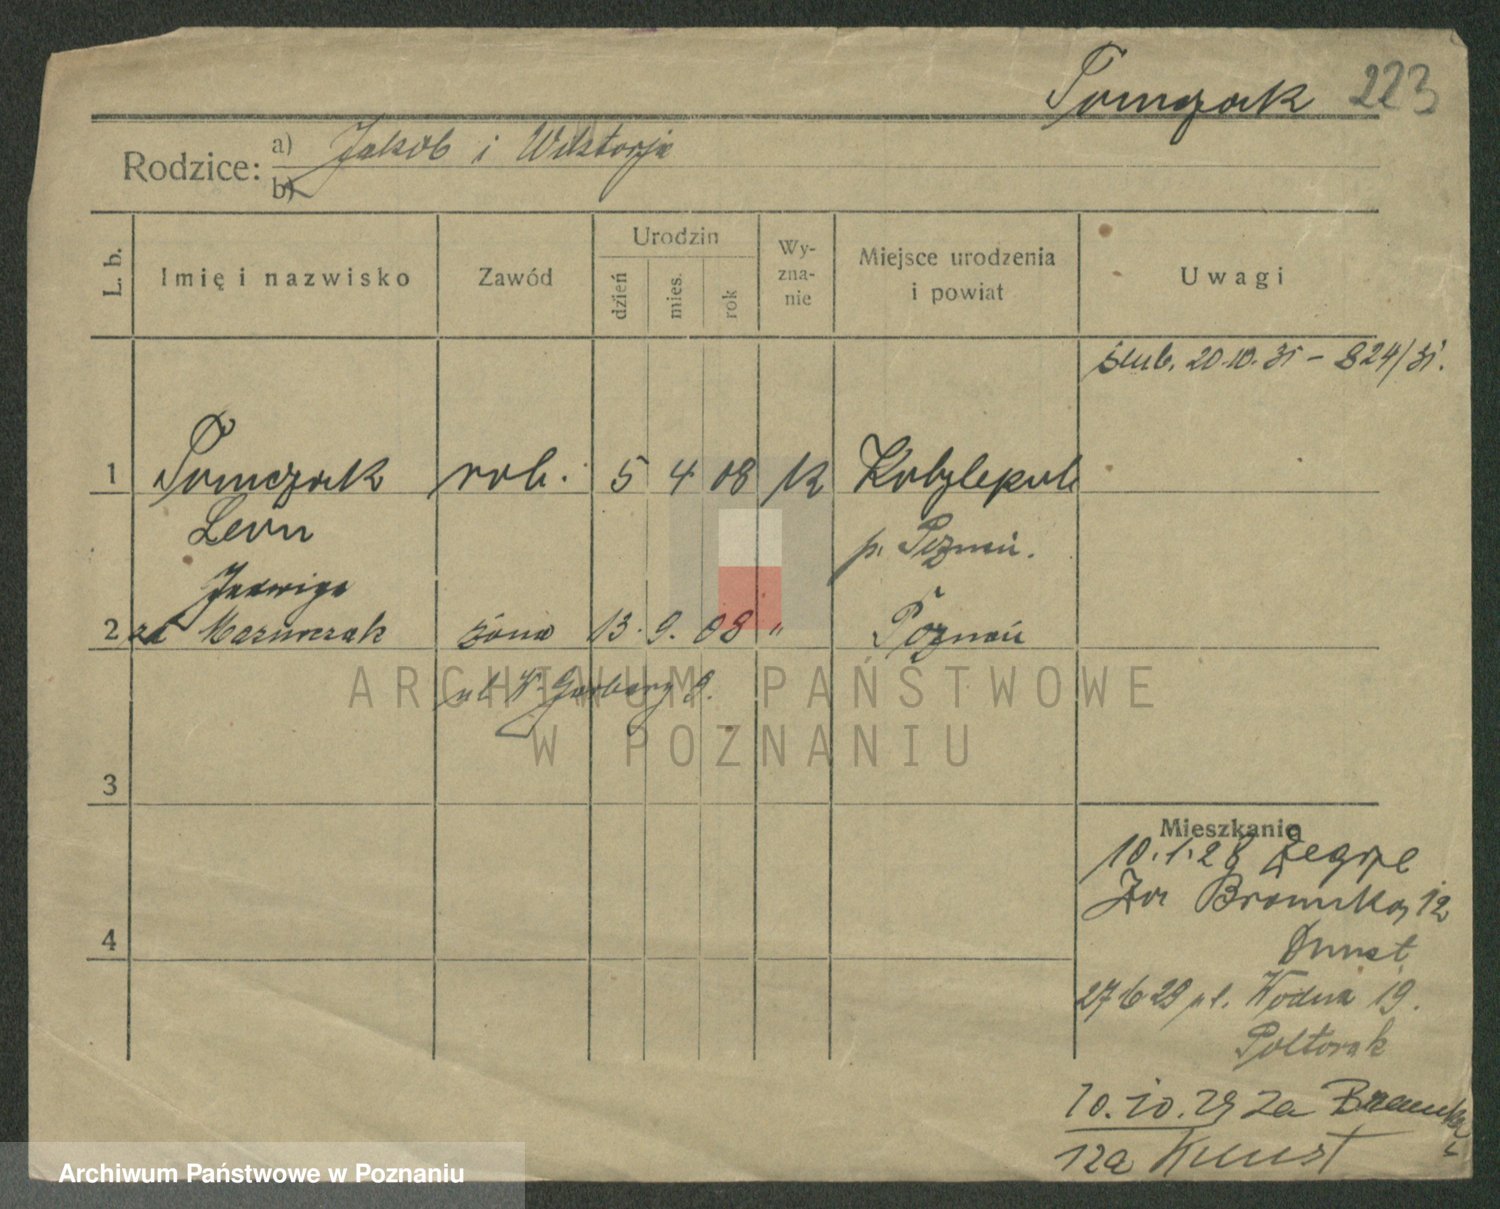 Tomczak 223
Rodzice: a) Jakób i Wiktorja
b)
L. b. Imię i nazwisko Zawód Urodzin dzień mies. rok Wy-zna-nie Miejsce urodzenia i powiat Uwagi
ślub. 20.10.31 - 824/31.
1 Tomczak rob. 5 4 08 k Kobylepole
Leon p. Poznań.
Jadwiga
2 zd Mazurczak żona 13. 9. 08 " Poznań
ul. W. Garbary 9.
3
Mieszkania
10.1.28 Żegrze
Za Bramką 12
4
27 6 29 pl. Wodna 19.
Półtorak
10.10.29 Za Bramką
12a Kunst
ARCHIWUM PAŃSTWOWE
W POZNANIU
Archiwum Państwowe w Poznaniu